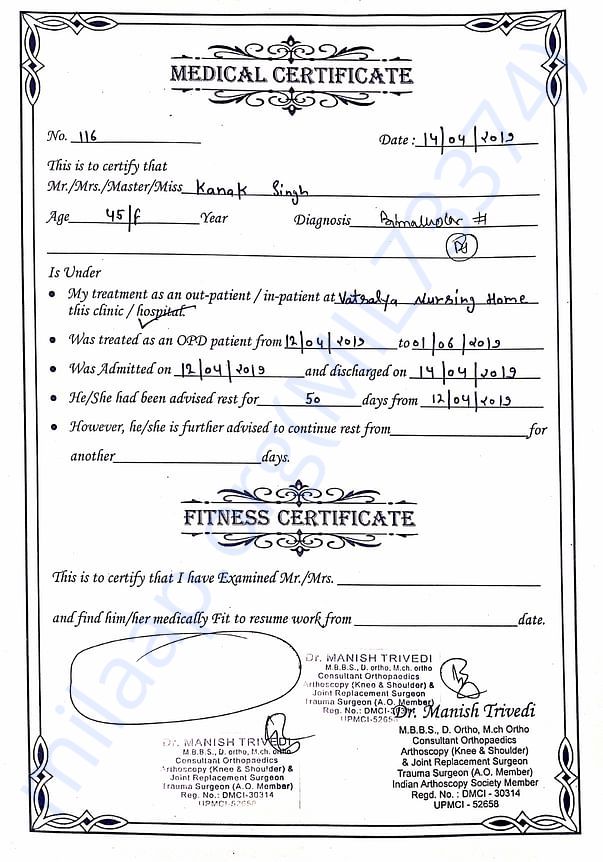 MEDICAL CERTIFICATE
No. 116
Date : 14/04/2019
This is to certify that
Mr./Mrs./Master/Miss Kanak Singh
Age 45/f Year Diagnosis #
Is Under
• My treatment as an out-patient / in-patient at Vatsalya Nursing Home
this clinic / hospital.
• Was treated as an OPD patient from 12/04/2019 to 01/06/2019
• Was Admitted on 12/04/2019 and discharged on 14/04/2019
• He/She had been advised rest for 50 days from 12/04/2019
• However, he/she is further advised to continue rest from for
another days.
FITNESS CERTIFICATE
This is to certify that I have Examined Mr./Mrs.
and find him/her medically Fit to resume work from date.
Dr. MANISH TRIVEDI
M.B.B.S., D. ortho, M.ch. ortho
Consultant Orthopaedics
Arthoscopy (Knee & Shoulder) &
Joint Replacement Surgeon
Trauma Surgeon (A.O. Member)
Reg. No.: DMCI-30314
UPMCI-52658
Dr. Manish Trivedi
M.B.B.S., D. Ortho, M.ch Ortho
Consultant Orthopaedics
Arthoscopy (Knee & Shoulder)
& Joint Replacement Surgeon
Trauma Surgeon (A.O. Member)
Indian Arthoscopy Society Member
Regd. No. : DMCI - 30314
UPMCI - 52658
Dr. MANISH TRIVEDI
M.B.B.S., D. ortho, M.ch. ortho
Consultant Orthopaedics
Arthoscopy (Knee & Shoulder) &
Joint Replacement Surgeon
Trauma Surgeon (A.O. Member)
Reg. No.: DMCI-30314
UPMCI-52658
milaap.org(MIL783374)